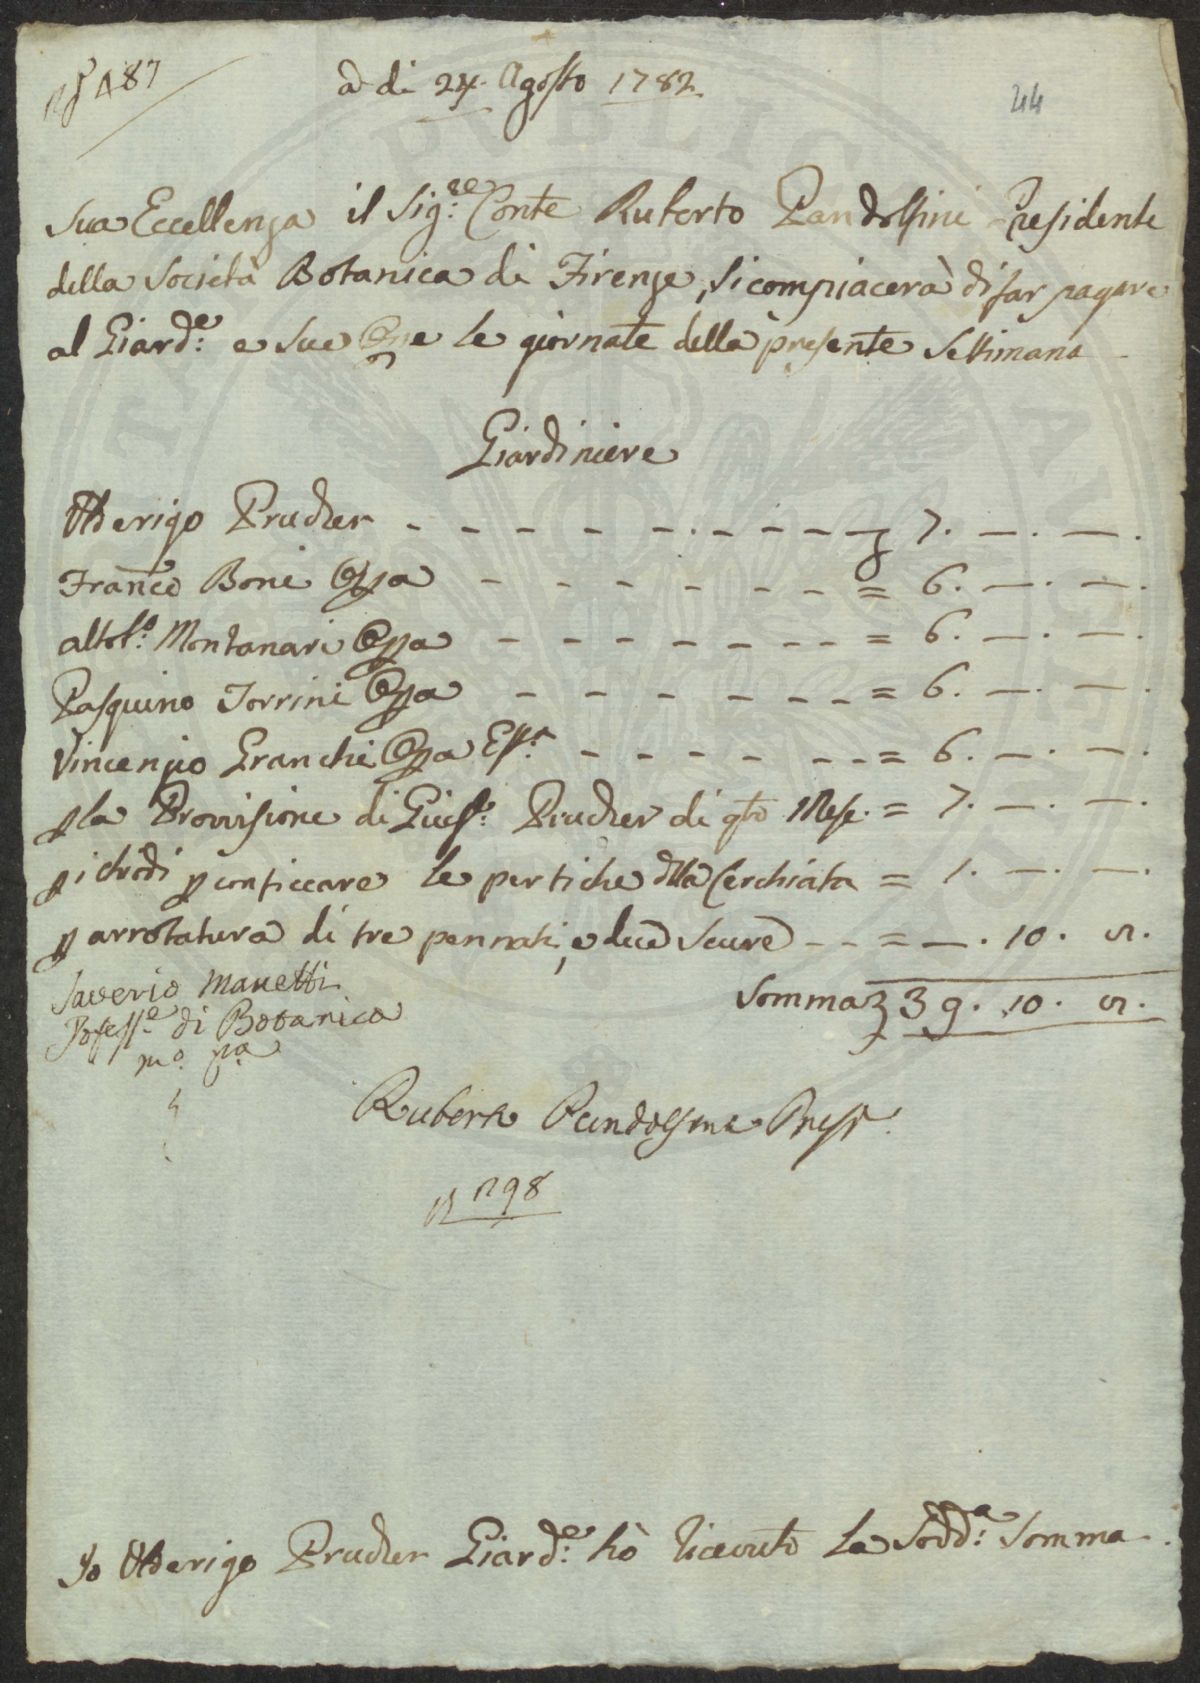 N.º 487
à di 24. Agosto 1782.
44
Sua Eccellenza il Sig.re Conte Ruberto Pandolfini Presidente
della Società Botanica di Firenze, si compiacerà di far pagare
al Giard.e e sue Opre le giornate della presente Settimana
Giardiniere
Ulderigo Prucker - - - - - - - - - £ 7. —. —.
Franco Boni Opra - - - - - - - = 6. —. —.
Montanari Opra - - - - - - - = 6. —. —.
Pasquino Torrini Opra - - - - - - = 6. —. —.
Vincenzio Granchi Opra - - - - - - = 6. —. —.
p la Provisione di Gius.e Prucker di qto Mese. = 7. —. —.
p chiodi p conficcare le pertiche dlla Cerchiata = 1. —. —.
p arrotatura di tre pennati, e due Scure - - = —. 10. —.
Saverio Manetti
Professe. di Botanica
mo. pa.
Somma £ 39. 10. —.
Ruberto Pandolfini Presid.
Io Ulderigo Prucker Giard.e hò ricevuto la Sodd.a Somma.